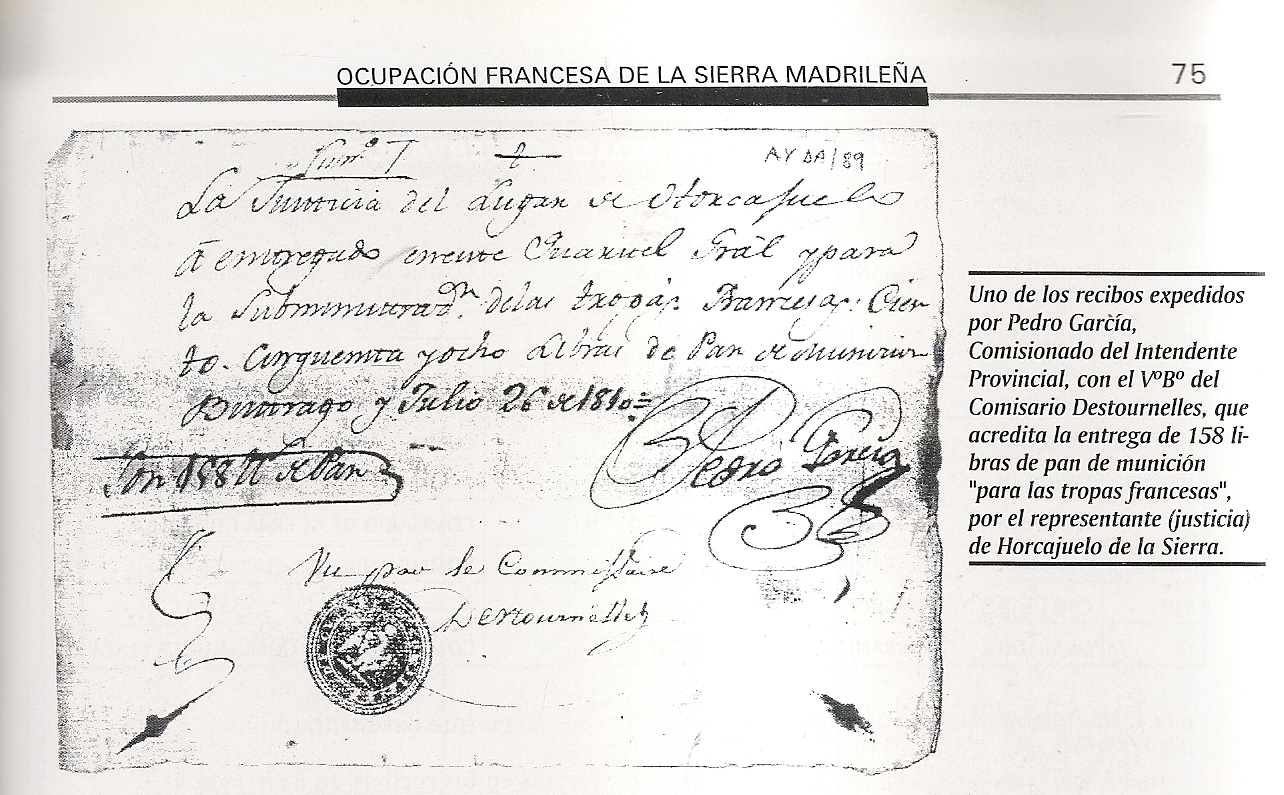 OCUPACIÓN FRANCESA DE LA SIERRA MADRILEÑA
75
AYDA/89
La Justicia del Lugar de Horcajuelo
à entregado eneste Quartel Grâl y para
la Subministradn. delas tropas Francesas. Cien-
to. Cinquenta y ocho Libras de Pan de Munición
Buitrago y Julio 26 de 1810=
Pedro Garcia
Son 158 lt de Pan
Vu par le Commissaire
Destournelles
Uno de los recibos expedidos
por Pedro García,
Comisionado del Intendente
Provincial, con el VºBº del
Comisario Destournelles, que
acredita la entrega de 158 li-
bras de pan de munición
"para las tropas francesas",
por el representante (justicia)
de Horcajuelo de la Sierra.